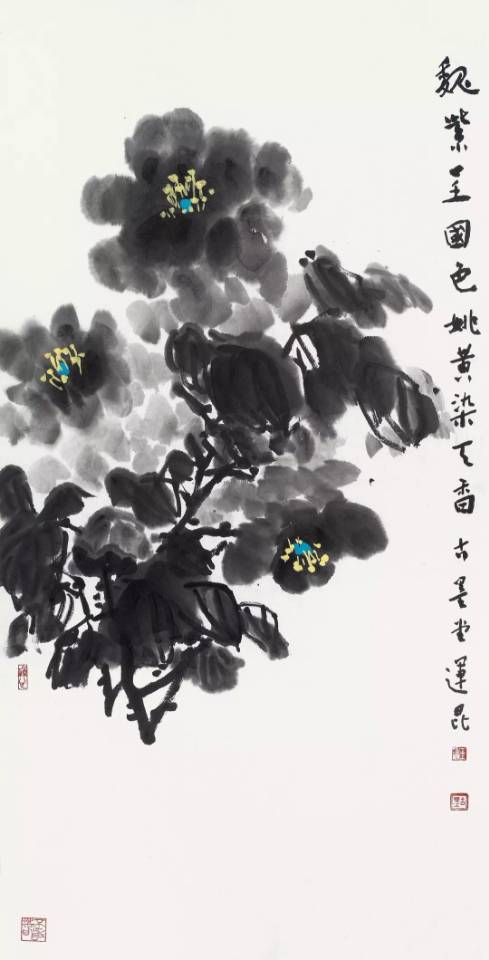 魏紫呈國色姚黄染天香古墨堂運昆